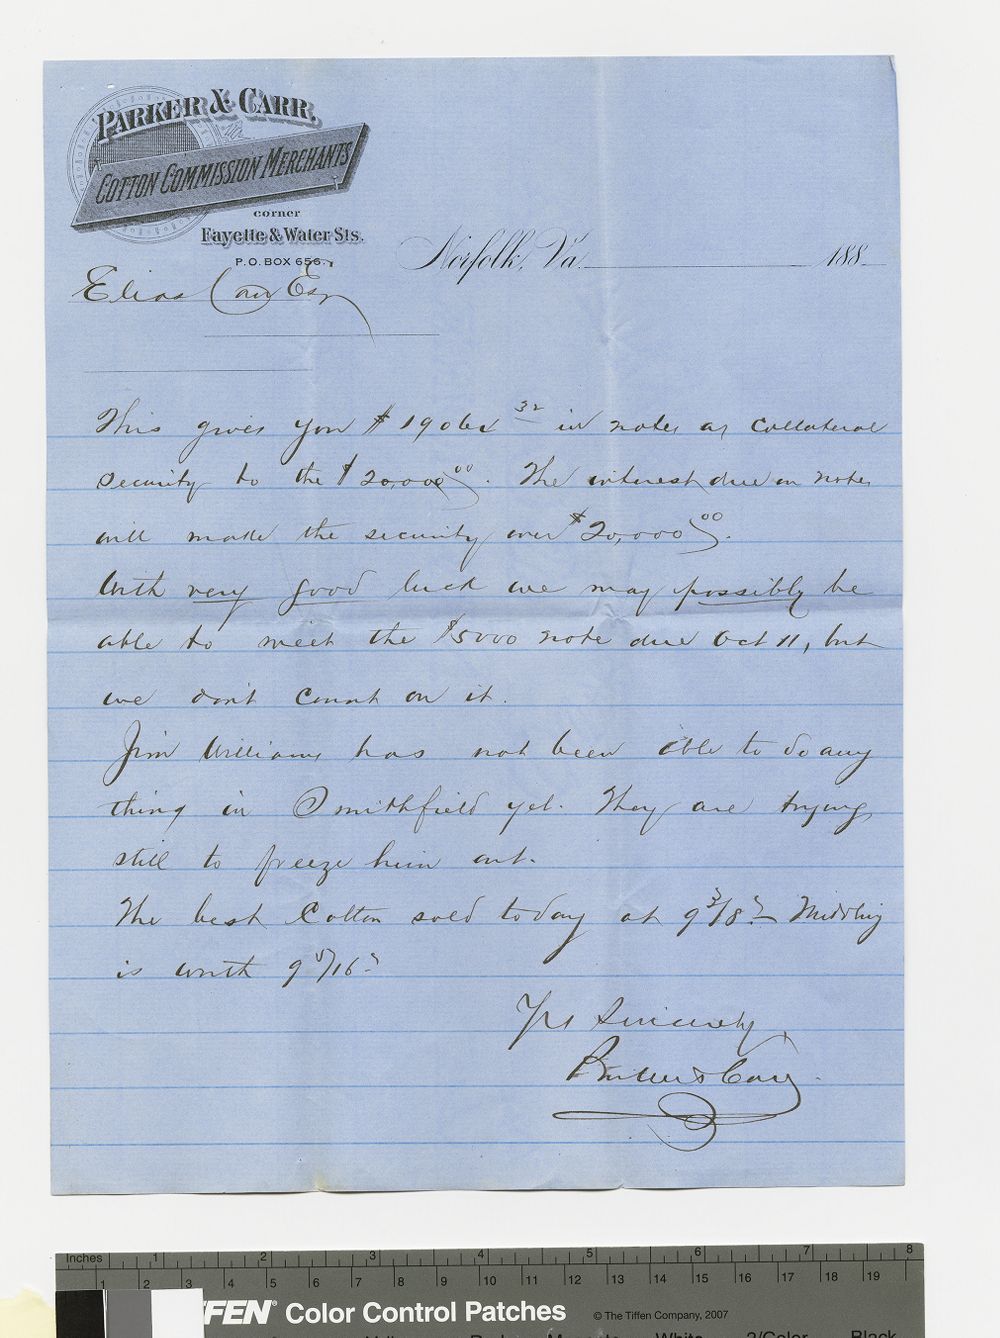 PARKER & CARR.
COTTON COMMISSION MERCHANTS
corner
Fayette & Water Sts.
P.O. BOX 656.
Norfolk, Va. 188
Elias Carr Esq
This gives you $ in notes as collateral
security to the $20,000 00. The interest due on notes
will make the security over $20,000 00.
With very good luck we may possibly be
able to meet the $5000 note due Oct 11, but
we don't count on it.
Jim Williams has not been able to do any
thing in Smithfield yet. They are trying
still to freeze him out.
The best Cotton sold today at 9 3/8 Middling
is worth 9 5/16
Yrs Sincerely
Parker & Carr.
Inches 1 2 3 4 5 6 7 8
1 2 3 4 5 6 7 8 9 10 11 12 13 14 15 16 17 18 19
FFEN® Color Control Patches © The Tiffen Company, 2007
White 3/Color Black